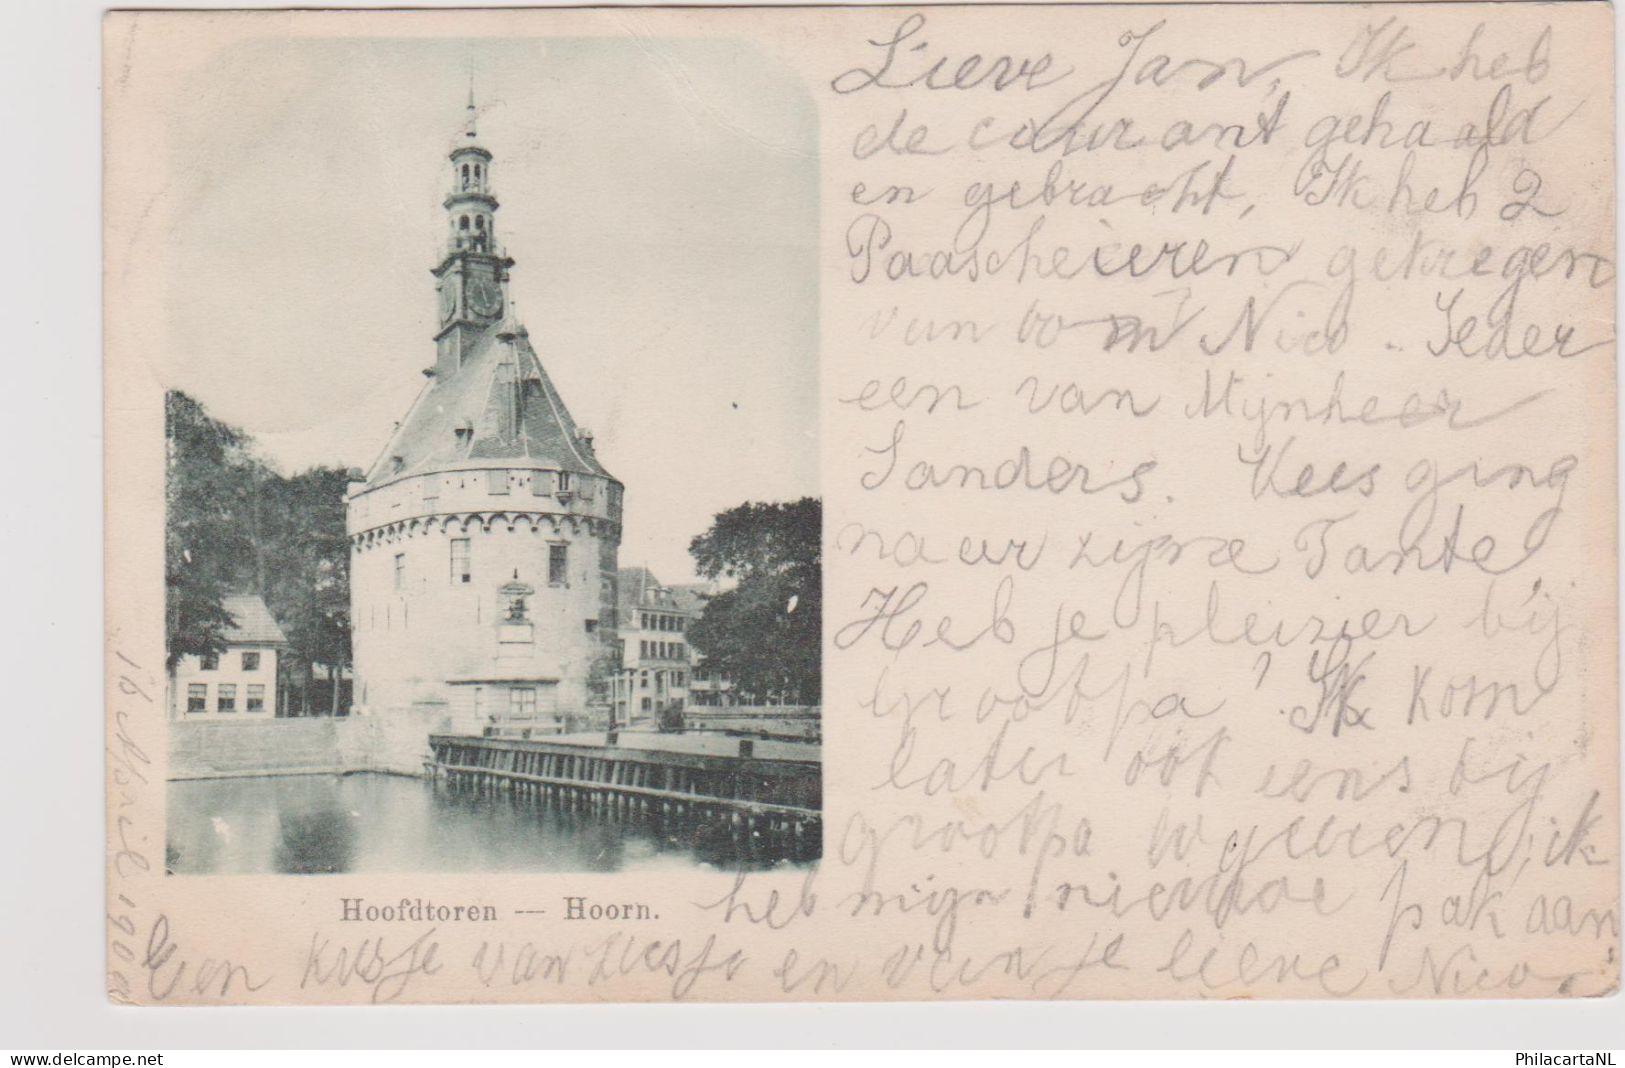 Lieve Jan, Ik heb
de courant gehaald
en gebracht, Ik heb 2
Paascheieren gekregen
van oom Nico. Ieder
een van Mijnheer
Sanders. Kees ging
naar zijne Tante
Heb je pleizier bij
Grootpa? Ik kom
later ook eens bij
grootpa logeeren, ik
heb mijn nieuwe pak aan,
Een kusje van Zusje en van je lieve Nico.
16 April 1900
Hoofdtoren — Hoorn.
www.delcampe.net
PhilacartaNL